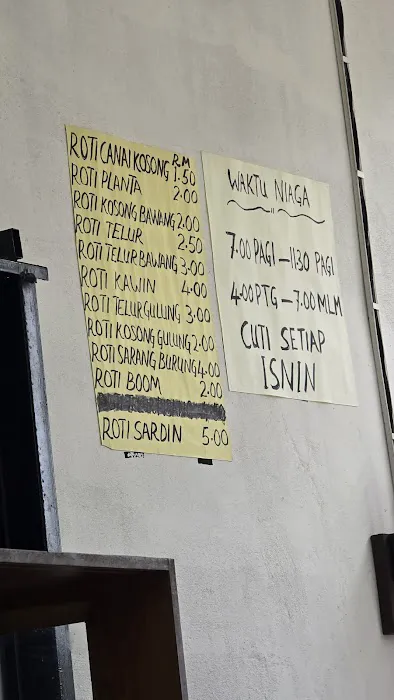 RM
ROTI CANAI KOSONG 1.50
ROTI PLANTA 2.00
ROTI KOSONG BAWANG 2.00
ROTI TELUR 2.50
ROTI TELUR BAWANG 3.00
ROTI KAWIN 4.00
ROTI TELUR GULUNG 3.00
ROTI KOSONG GULUNG 2.00
ROTI SARANG BURUNG 4.00
ROTI BOOM 2.00
ROTI SARDIN 5.00
WAKTU NIAGA
7.00 PAGI – 1130 PAGI
4.00 PTG – 7.00 MLM
CUTI SETIAP
ISNIN